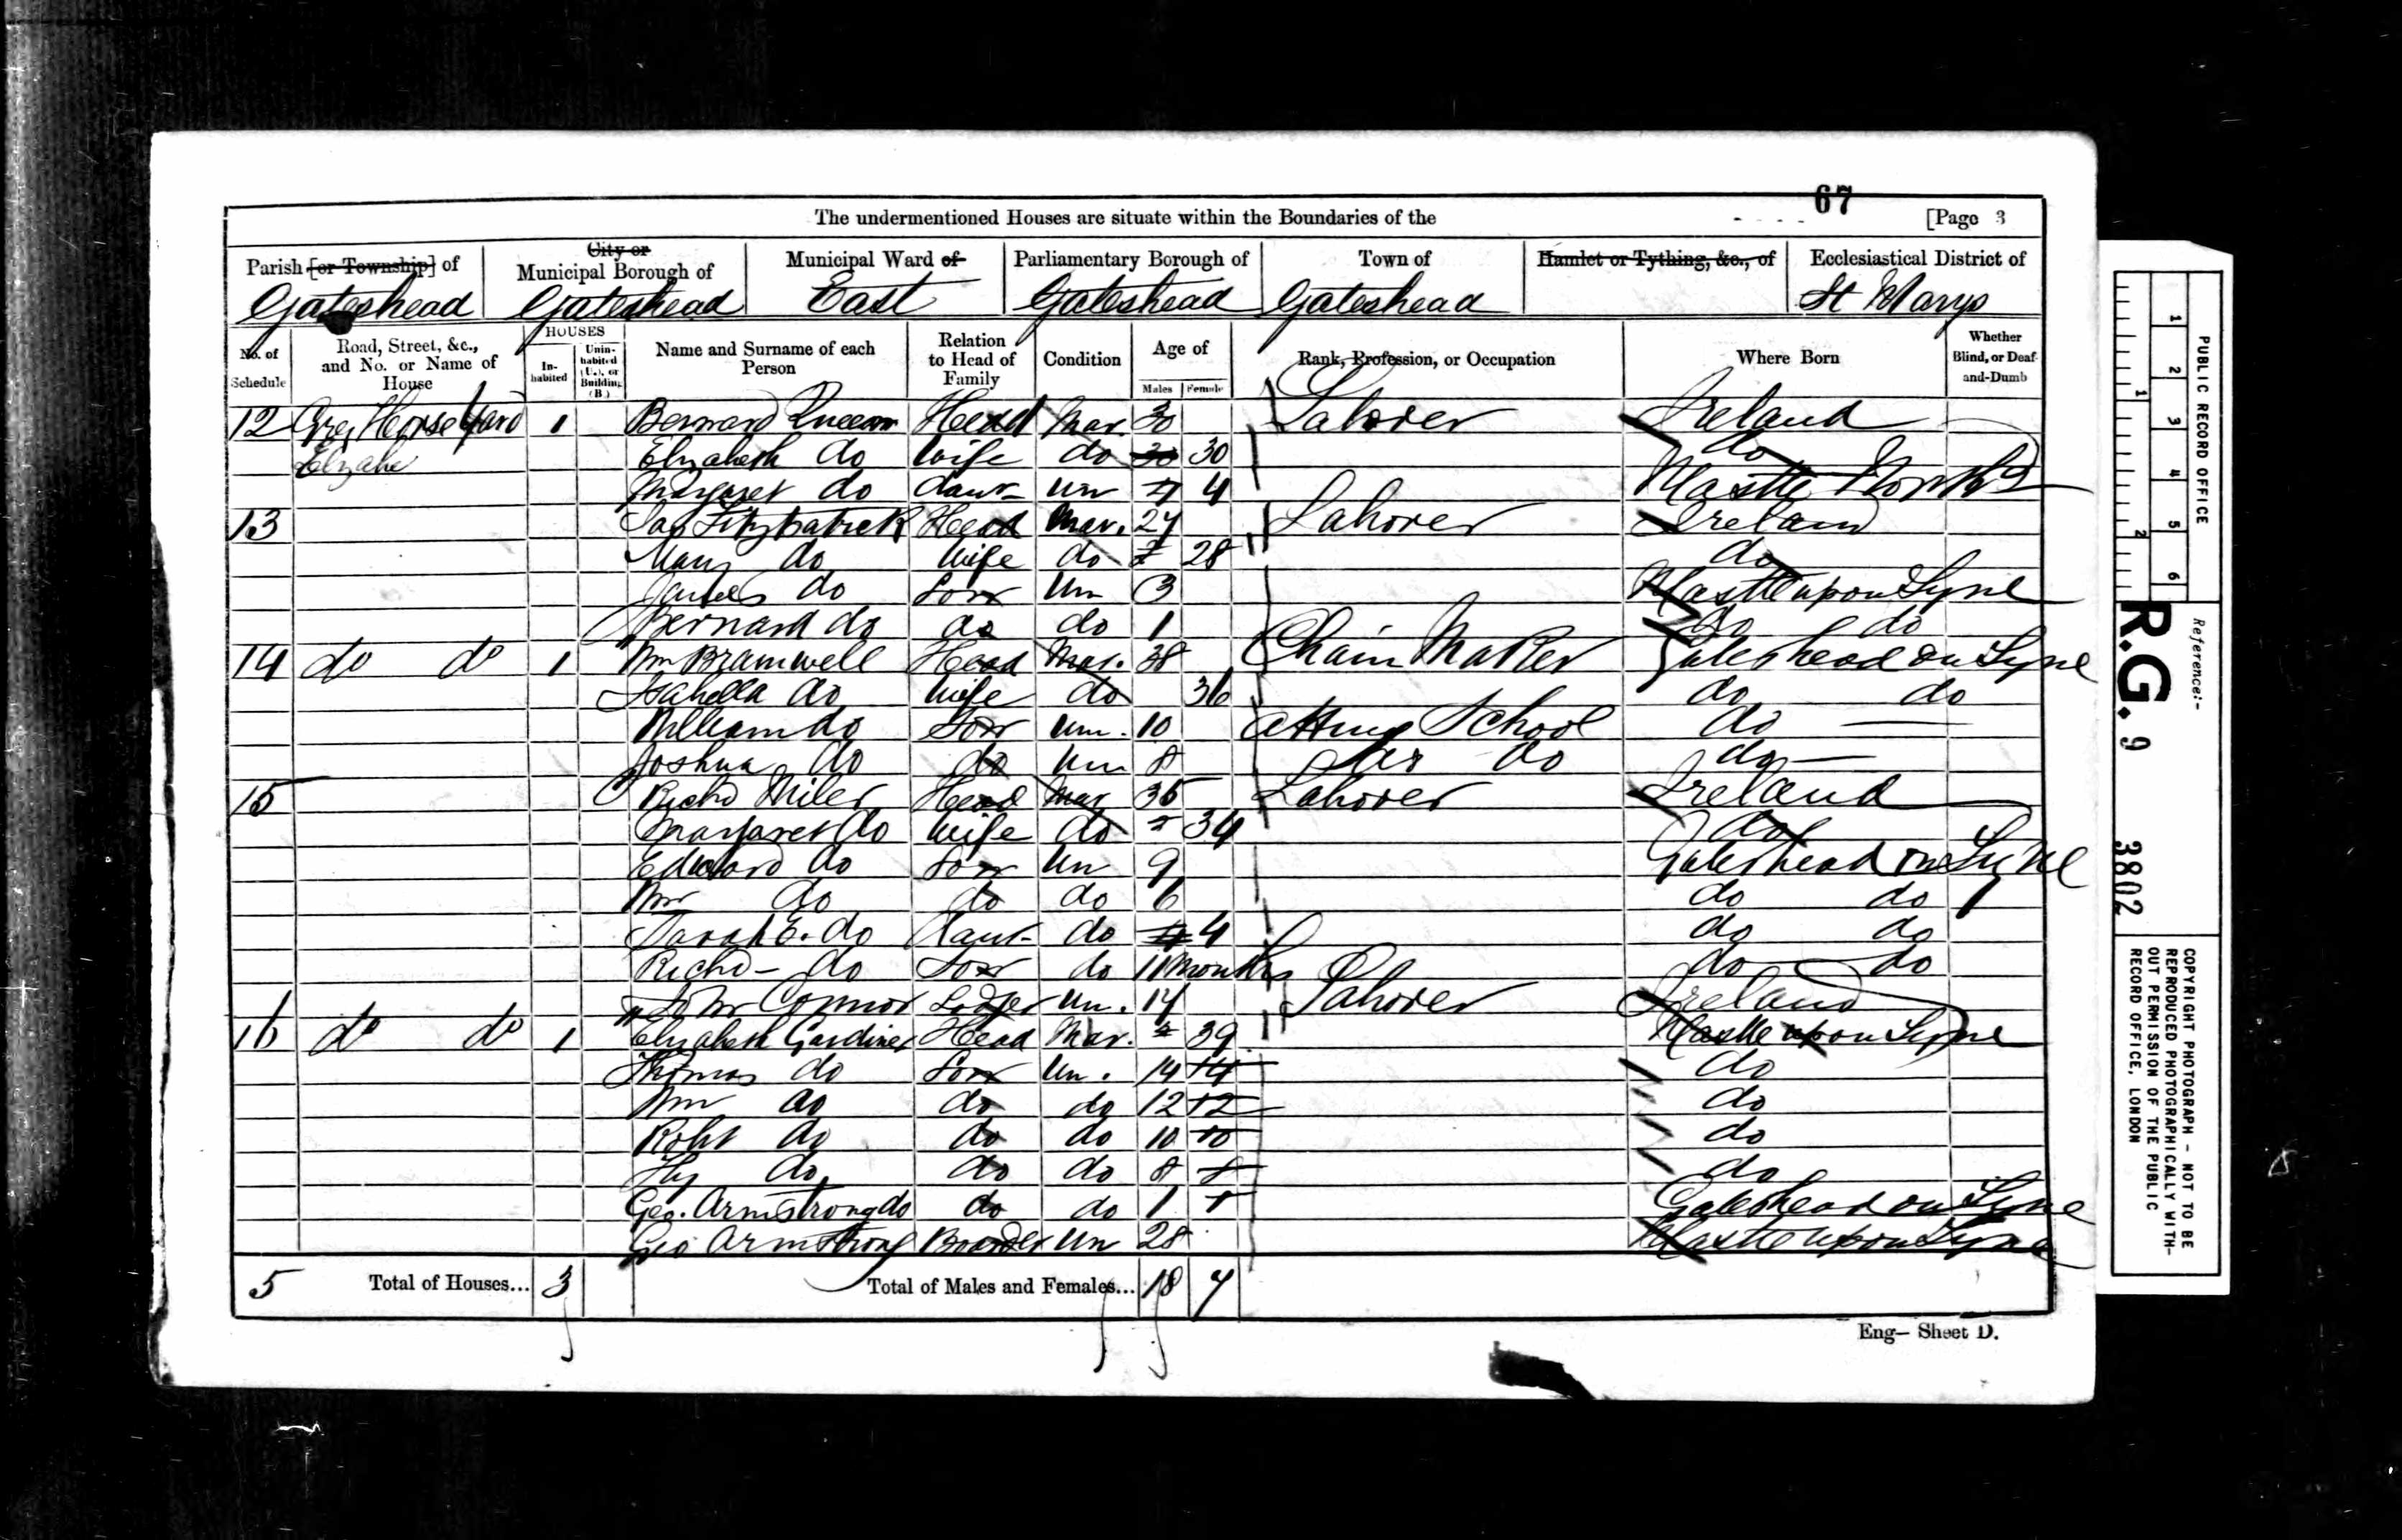 67
The undermentioned Houses are situate within the Boundaries of the [Page 3
Parish [or Township] of City or Municipal Borough of Municipal Ward of Parliamentary Borough of Town of Hamlet or Tything, &c., of Ecclesiastical District of
Gateshead Gateshead East Gateshead Gateshead St Marys
No. of Schedule Road, Street, &c., and No. or Name of House HOUSES Inhabited Uninhabited (U.), or Building (B.) Name and Surname of each Person Relation to Head of Family Condition Age of Males Females Rank, Profession, or Occupation Where Born Whether Blind, or Deaf-and-Dumb
12 Grey Horse Yard 1 Bernard Head Mar. 30 Laborer Ireland
Elizabe Elizabeth do Wife do 30 30 do
Margaret do Daur Un 4 4 NCastle
13 Jas Fitzpatrick Head Mar. 27 Laborer Ireland
Mary do Wife do 28 do
James do Son Un 3 NCastle upon Tyne
Bernard do do do 1 do do
14 do do 1 Wm Bramwell Head Mar. 38 Chain Maker Gateshead on Tyne
Isabella do Wife do 36 do do
William do Son Un. 10 Atting School do
Joshua do do Un 8 do do
15 Richd Miler Head Mar 35 Laborer Ireland
Margaret do Wife do 34 do
Edward do Son Un 9 Gateshead on Tyne
Wm do do do 6 do do
Sarah E. do Daur do 4 4 do do
Richd do Son do 11 months do do
John Connor Lodger Un. 17 Laborer Ireland
16 do do 1 Elizabeth Gardiner Head Mar. 39 NCastle upon Tyne
Thomas do Son Un. 14 14 do
Wm do do do 12 12 do
Robt do do do 10 10 do
Hy do do do 8 8 do
Geo. Armstrong do do do 1 1 Gateshead on Tyne
Geo Armstrong Boarder Un 28 NCastle upon Tyne
5 Total of Houses... 3 Total of Males and Females... 18 7
Eng- Sheet D.
PUBLIC RECORD OFFICE
1 2 3 4 5 6
1 2
Reference:-
R.G. 9 3802
COPYRIGHT PHOTOGRAPH - NOT TO BE
REPRODUCED PHOTOGRAPHICALLY WITH-
OUT PERMISSION OF THE PUBLIC
RECORD OFFICE, LONDON